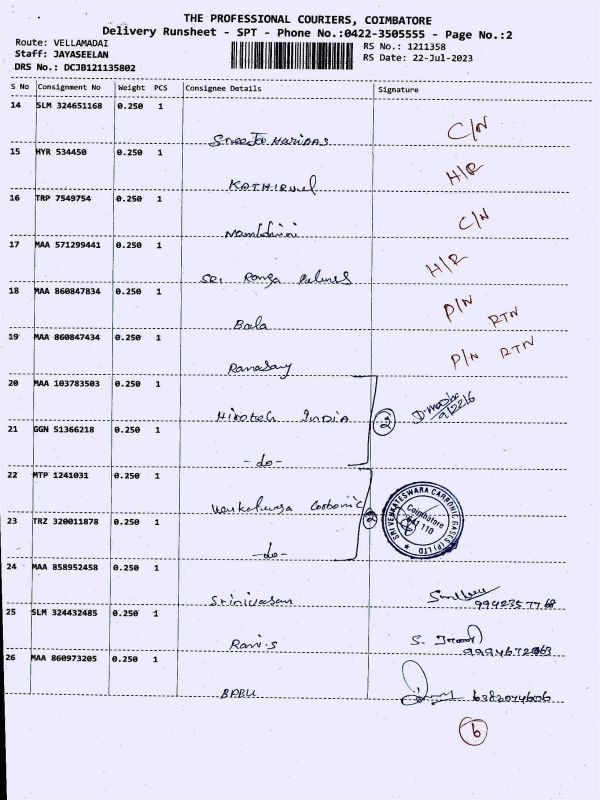 THE PROFESSIONAL COURIERS, COIMBATORE
Delivery Runsheet - SPT - Phone No.:0422-3505555 - Page No.:2
Route: VELLAMADAI
Staff: JAYASEELAN
DRS No.: DCJB121135802
RS No.: 1211358
RS Date: 22-Jul-2023
S No Consignment No Weight PCS Consignee Details Signature
14 SLM 324651168 0.250 1
Sreejo Haridas C/N
15 HYR 534450 0.250 1
KATHIRvel H/R
16 TRP 7549754 0.250 1
C/N
17 MAA 571299441 0.250 1
SRI Ranga H/R
18 MAA 860847834 0.250 1
Bala P/N RTN
19 MAA 860847434 0.250 1
Ramasamy P/N RTN
20 MAA 103783503 0.250 1
Hirotech INDIA 2
21 GGN 51366218 0.250 1
-do-
22 MTP 1241031 0.250 1
Carbonic 2
SRI VENKATESWARA CARBONIC GASES (P) LTD
Coimbatore
641 110
23 TRZ 320011878 0.250 1
-do-
24 MAA 858952458 0.250 1
Srinivasan 9942357768
25 SLM 324432485 0.250 1
Rani.S S.
26 MAA 860973205 0.250 1
6